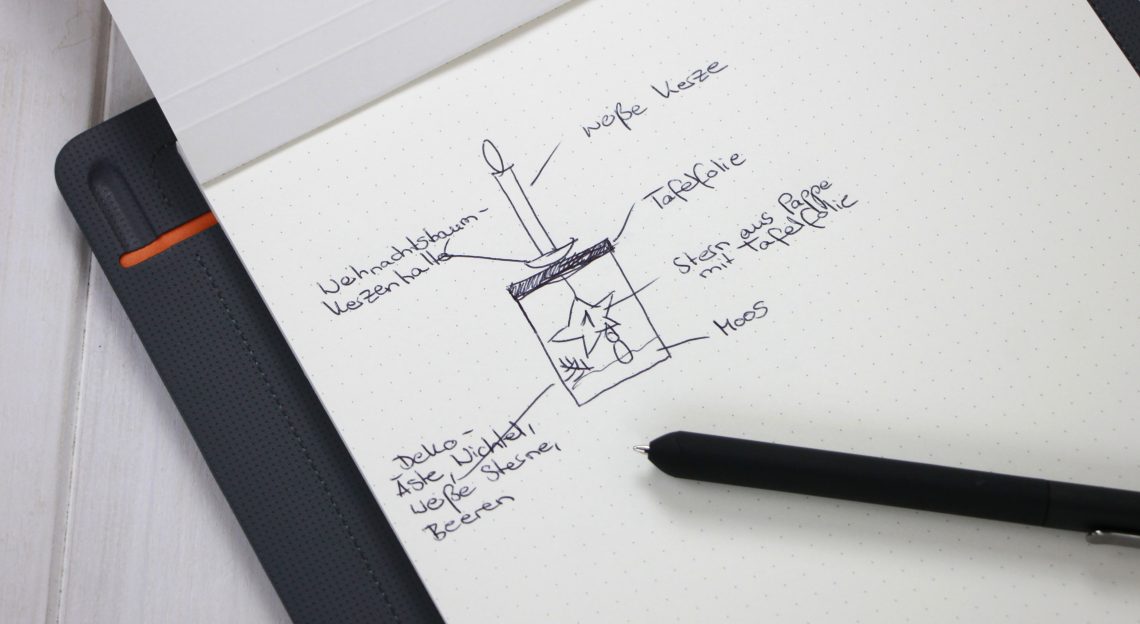 weiße Kerze
Tafelfolie
Stern aus Pappe
mit Tafelfolie
Moos
Weihnachtsbaum-
kerzenhalter
Deko-
Äste, Wichtel,
weiße Sterne,
Beeren